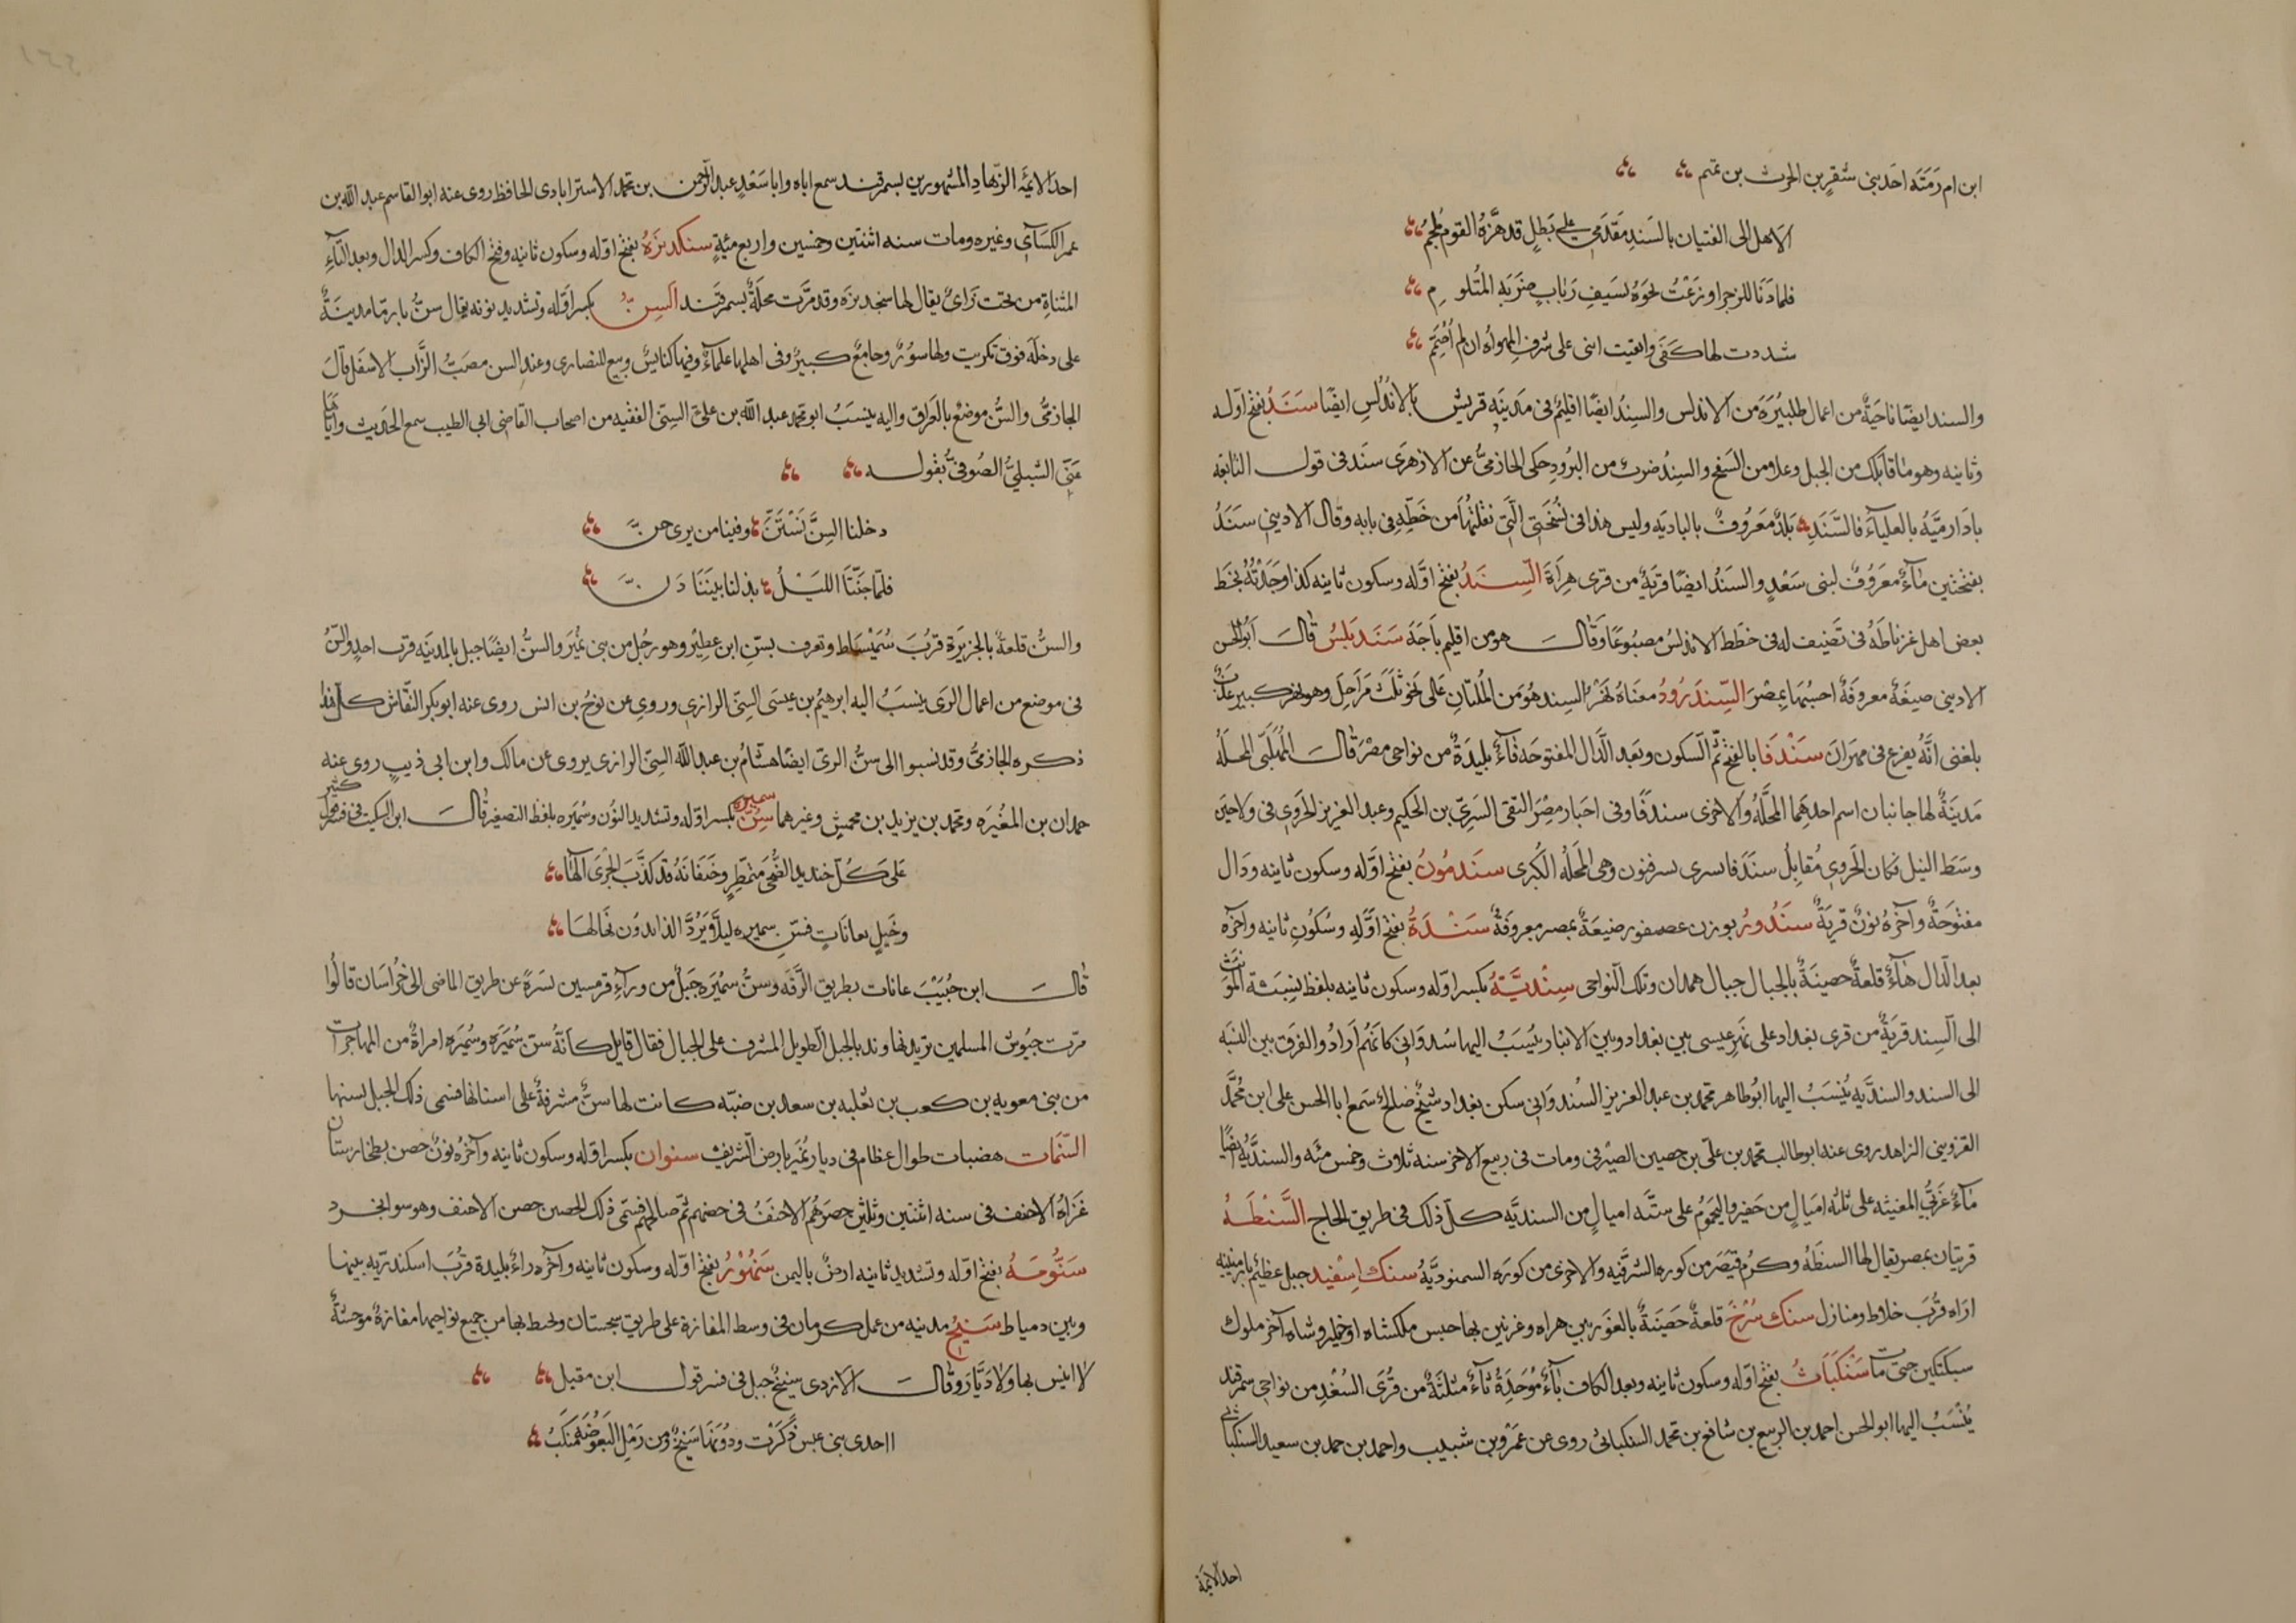 ابن ام رَمَثَه احَد بنى شقرٍ بن الحرث بن تميم
الا هل الى الفتيان بالسَندِ مَقدَمى على بَطلٍ قد هَزَّهُ القوم مُلجمُ
فلما دَنَا للزجر اوزعْتُ نحوَهُ بسَيفِ ذبابٍ ضَربَه المُتلوِّم
شددت لها كَفّى وايقنت اننى على شرف المهواه ان لم اُصَمِّم
والسند ايضًا ناحيَةٌ من اعمال طلبيُرَةَ من الاندلس والسِندُ ايضًا اقليمٌ فى مدينه قريش بالاندُلسِ ايضًا سَنَدُ بفتح اوله
وثانيه وهو ما قابَلك من الجبل وعلا من السَفح والسِندُ ضربٌ من البرُودِ حكى الحازمىُّ عن الازهرى سَنَد فى قول النابغه
يا دَارميَّهَ بالعلياءِ فالسَّنَدِ بَلدٌ مَعرُوفٌ بالباديَه وليس هذا فى نسُختى الَّتى نقلتُهَا من خَطِّهِ فى بابه وقال الاديبى سَنَدُ
بفتحتين مَاءٌ معَروُفٌ لبنى سَعْدٍ والسَنَدُ ايضًا قريَةٌ من قرى هرَاةَ السِندُ بفتح اوَّله وسكون ثانيه كذا وجَدْتُهُ بخَط
بعض اهل غرناطَهُ فى تَصنيف له فى خطَط الاندلسُ مصبُوعًا وَقَالَ هو من اقليم بَاجَه سَنَدبَلسُ قَالَ ابُو الحسن
الاديبى صيغَةٌ معروفَةٌ احسبُهَا بمِصْرَ السِّندَرُودُ معنَاهُ نَهْرُ السِند هُو من المُلتانِ عَلى نحو ثلَثَ مرَاحِلَ وهو نهر كبير عذبٌ
بلغنى انَّهُ يفرغ فى مهرَانَ سَنْدَفا بالفتح ثمَّ السكون وبعَد الدَّال المفتوحَة فاءٌ بليدَةٌ من نواحى مصْرَ قَالَ المُهَلَّبى المحلّةُ
مَدينَةٌ لها جانبان اسم احدهَما المحلَّةُ والاخرى سندفًا وفى اخبار مصْرَ التقى السَرىّ بن الحكيم وعبد العزيز الجَروى فى ولاحَين
وسَط النيل فكان الجَروى مُقابلُ سنَدفا بسرى بسرفتون وهى المَحلهُ الكُبرى سنَدمُونُ بفتح اوَّله وسكون ثانيه ودَال
مفتوحَةٌ وآخرُهُ نونٌ قريَةٌ سنَدُورُ بوزن عصفور ضيعَةٌ بمصر معروفَةٌ سَنْدَةُ بفتح اوَّلهِ وسُكونِ ثانيه وآخرَه
بعد الدَّال هَاءٌ قلعةٌ حصينَةٌ بالجبال جبال همدان وتلك النواحى سِنْديَّةُ بكسر اوله وسكون ثانيه بلفظ نسِبَة الموَنث
الى السِند قريَةٌ من قرى بغداد على نهر عيسى بين بغداد وبين الانبار يُنسَبُ اليها سُدوَانى كانهُم ارَادُوا الفرَق بين النسَبَه
الى السند والسنديَّه يُنسَبُ اليها ابُو طاهر محَمد بن عبد العزيز السُندوَانى سكن بغداد شيخٌ صَالحٌ سَمع ابا الحسن على ابن مُحمَّد
القزوينى الزاهد روى عنه ابو طالب محمد بن علىّ بن حصين الصيرفى ومات فى ربيع الاخر سنه ثلاث وخمس مئه والسنديَّهُ ايضًا
مَاءٌ غربىَّ المغيثه على ثلثه اميال من حفير واليحمومُ على ستَّه اميالٍ من السنديَّه كلّ ذلك فى طريق الحاج السَّنْطَهُ
قريتان بمصر يقال لها السنطَهُ وكرمُ قيصَر من كوره الشرقيه والاخرى من كورَه السمنوديَّةُ سنك اِسْفيد جبل عظيمٌ بارمينيه
ارَاه قُرْبَ خلاط ومنازل سنك سُرْخَ قلعةٌ حَصينَةٌ بالغَور بين هراه وغزنين بها حبس ملكشاه او خمار وشاه آخر ملوك
سبكتكين حتى مات سَنْكَبَاثُ بفتح اوله وسكون ثانيه وبعد الكاف بَاءٌ مُوحَدَةٌ ثاءٌ مثلثَةٌ من قُرَى السُغْدِ من نواحى سمرقند
يُنْسَبُ اليها ابو الحسن احمد بن الربيع بن شافع بن محمد السنكباثى روى عن عَمْرو بن شبيب واحمد بن حمد بن سعيد السنكباثى
احد الائمة
احد الائمَّه الزهادِ المشهورين بسمرقند سمع اباه وابا سَعْدٍ عبد الرحمن بن محمد الاسترابادى الحافظ روى عنه ابو القاسم عبد الله بن
عمر الكسَائى وغيره ومات سنه اثنتين وخمسين واربع مئةٍ سنكديزَهُ بفتح اوله وسكون ثانيه وفتح الكاف وكسر الدال وبعد اليَاءِ
المثناةِ من تحت زَاىٌ يقال لها سنجديزَه وقد مرَّت محلَةٌ بسمرقَند السِنُّ بكسر اوَله وتشديد نونه يقال سنُّ بارمّا مدينَةٌ
على دخلَه فوق تكريت ولها سوُرٌ وجامعٌ كبيرٌ وفى اهلها علمَاءٌ وفيها كنايسٌ وبيع للنصارى وعند السن مصَبُّ الزَّاب الاسفَل قَالَ
الحازمىُّ والسَّنُّ موضعٌ بالعَراق واليه ينسَبُ ابو محمد عبد الله بن علىّ السِنِى الفقيه من اصحاب القاضى ابى الطيب سمع الحديث وايَّاهَا
عَنَى الشبلىُّ الصُوفىُّ بقوله
دخلنا السِنَّ نَسْتَنَّ وفينا من يرى حنَّ
فلمّا جَنّنَا الليَلُ بذلنا بينَنَا دَنَّ
والسنُّ قلعةٌ بالجزيرَة قربُ سُمَيْسَاط وتعرف بسنّ ابن عطيرُ وهو رجُل من بنى نُميَر والسنُّ ايضًا جبل بالمدينَه قرب احدٍ والسنُّ
فى موضع من اعمال الرى ينسَبُ اليه ابرهيُم بن عيسى السِنى الرازى وروى عن نوُح بن انس روى عنه ابو بكر النقّاش كل هذا
ذكره الحازمىُّ وقد نسبوا الى سنُّ الرىّ ايضًا هشامُ بن عبد الله السِنى الرازى يروى عن مالك وابن ابى ذيب روى عنه
حمدان بن المغيرَه ومحمد بن يزيد بن محمش وغيرهما سِنُ سميره بكسر اوله وتشديد النون وسُميَره بلفظ التصغير قَالَ ابن السكيت فى تفسير قول كثير
عَلى كُلّ خنديد الضُّحى متمطّرٍ وخَنفانَهُ قد كذَّبَ الجرْىَ الهَا
وخَيلٍ بعانَاتٍ فسنِّ سميره ليلًا ويَرُدَّ الذايدوُن نهَالهَا
قَالَ ابن حَبيْبَ عانات بطريق الرَقَه وسنُّ سُميَره جَبلٌ من ورآءِ قرمسين يَسَرهً عن طريق الماضى الى خُراسَان قالُوا
مرت جيُوش المسلمين تريد نهاوند بالجبل الطويل المشرف على الجبال فقال قايلٌ كأنَّهُ سن سُميَرَه وسُميَره امراةٌ من المهاجرات
من بنى معويه بن كعب بن ثعلبه بن سعد بن ضبّه كانت لها سنٌّ مشرفةٌ على اسنانها فسمى ذلك الجبل بسنها
السِّنَمات هضبات طوال عظام فى ديار نُميَر بارض الشريف سنوان بكسر اوله وسكون ثانيه وآخرُه نونٌ حصن بطخارستان
غَزَاهُ الاحنف فى سنه اثنتين وثلثين حصَرَهُم الاحنَفُ فى حصنهم ثمّ صالحهم فسمّى ذلك الحصين حصن الاحنف وهو سوانجرد
سَنّومَهُ بفتح اوله وتشديد ثانيه ارضٌ باليمن سَنهُوْرُ بفتح اوله وسكون ثانيه وآخره رَاءٌ بليدة قرُبَ اسكندريه بينها
وبين دمياط سَنيحُ مدينه من عمل كرمان فى وسط المفازة على طريق سجستان وتحيط بها من جميع نواحيها مفازةٌ موحشةٌ
لا انيس بها ولا ديَّارَ وَقَالَ الازدى سينيحٌ جبل فى فسر قول ابن مقبل
ااحدى بنى عبس ذكَرْت ودُونَهَا سَنيحٌ ومن رَمْلِ البَعُوضَهِ مَنكَبُ